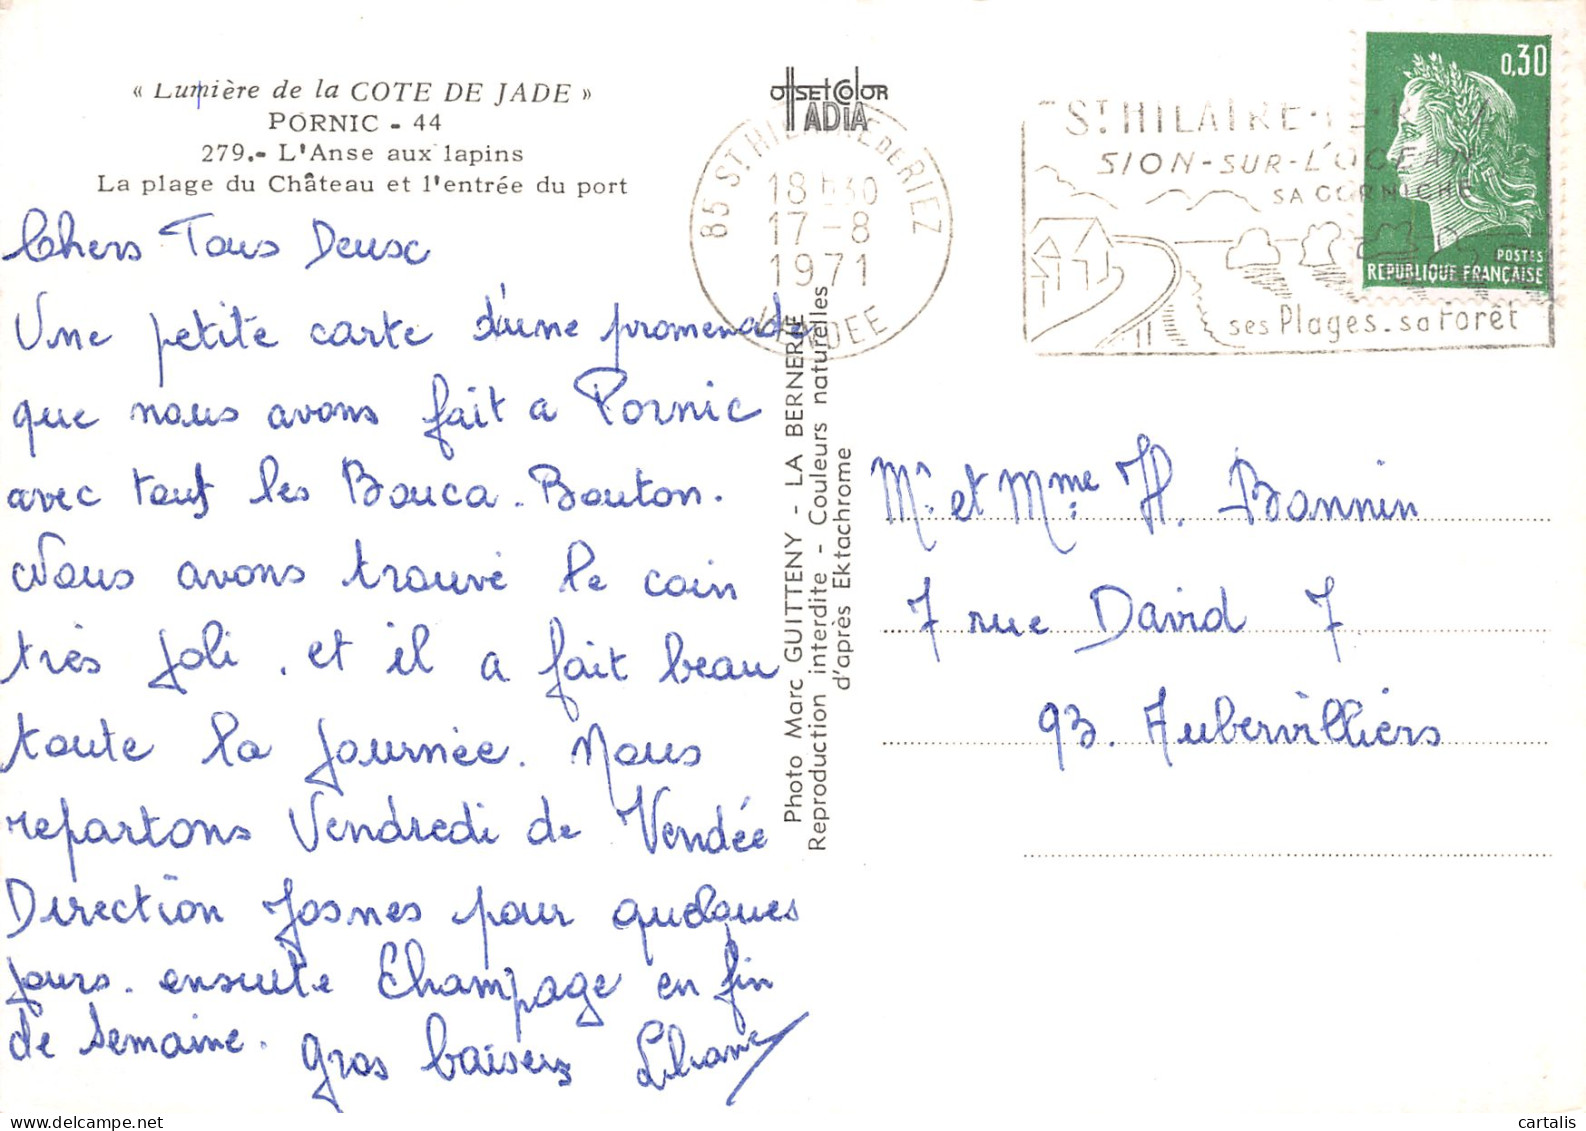 « Lumière de la COTE DE JADE »
PORNIC - 44
279.- L'Anse aux lapins
La plage du Château et l'entrée du port
Chers Tous Deux
Une petite carte d'une promenade
que nous avons fait a Pornic
avec tous les Bouca. Bouton.
Nous avons trouvé le coin
très joli. et il a fait beau
toute la journée. Nous
repartons Vendredi de Vendée
Direction Josnes pour quelques
jours. ensuite Champage en fin
de semaine. gros baisers
OFFSET COLOR
ADIA
85 ST HILAIRE DE RIEZ
18 h30
17-8
1971
VENDEE
Photo Marc GUITTENY - LA BERNERIE
Reproduction interdite - Couleurs naturelles
d'après Ektachrome
ST HILAIRE-DE-RIEZ
SION-SUR-L'OCEAN
SA CORNICHE
ses Plages. sa Forêt
0,30
POSTES
REPUBLIQUE FRANÇAISE
Mr et Mme H. Bonnin
7 rue David 7
93. Aubervilliers
delcampe.net
cartalis